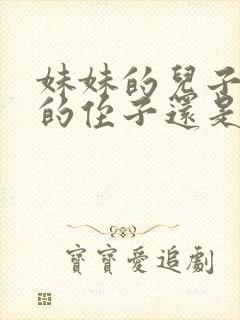 妹妹的兒子
的侄子還是
寶寶愛追劇